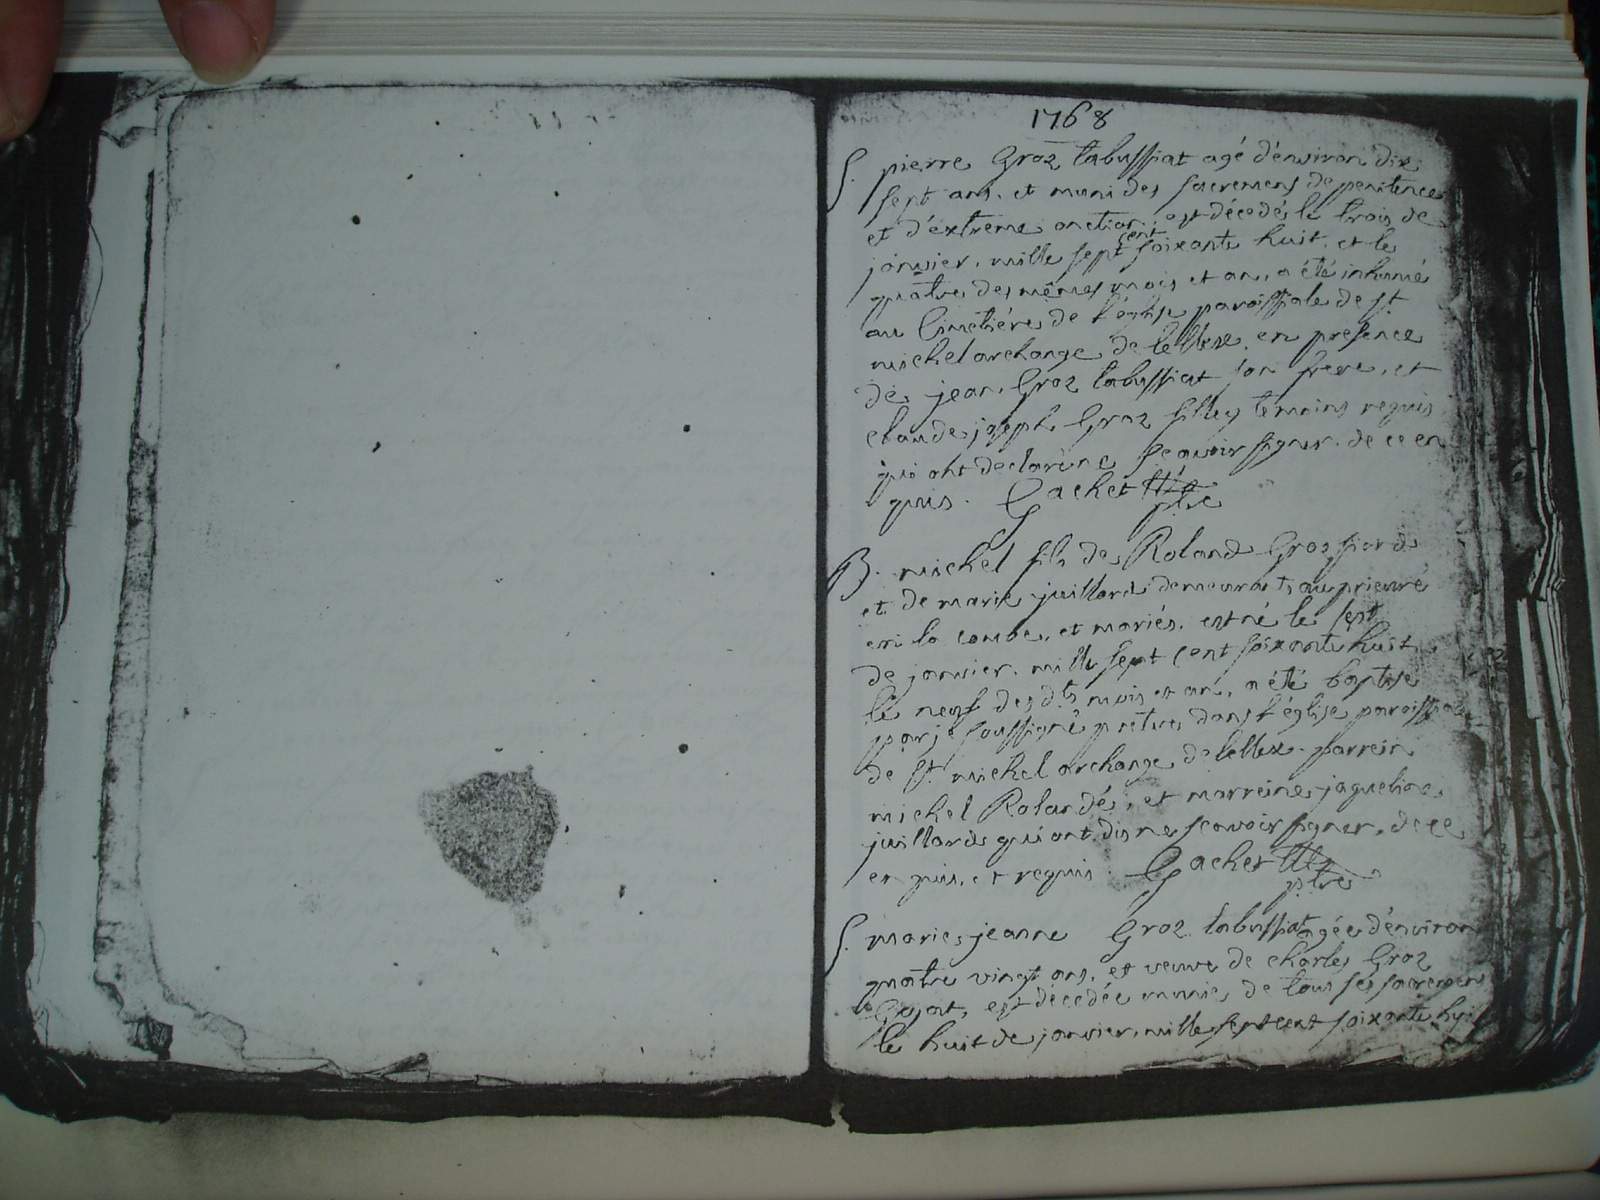 1768
S. pierre Groz labussiat agé d'environ dix
sept ans, et muni des sacremens de penitence
et d'extreme onction, est décedés le trois de
janvier, mille sept cent soixante huit, et le
quatre des mêmes mois et an, a été inhumé
au Cimetiére de l'église paroissiale de st
michel archange de lellex, en presence
de jean Groz labussiat son frere, et
claude joseph Groz filley temoins requis
qui ont declaré ne scavoir signer de ce en
quis. Gachet
ptre
B. michel fils de Roland Grospiard
et de marie juillard demeurants au prieuré
en la combe, et mariés, est né le sept
de janvier, mille sept cent soixante huit
le neuf des dts mois et an, a été baptise
par je soussigné pretre dans l'église paroissiale
de st michel archange de lellex. parrein
michel Rolandés, et marreine jaqueline
juillard qui ont dis ne scavoir signer, de ce
en quis, et requis. Gachet
ptre
S. marie jeanne Groz labussiat agée d'environ
quatre vingt ans, et veuve de charles Groz
est décedée munie de tous ses sacremens
le huit de janvier, mille sept cent soixante huit